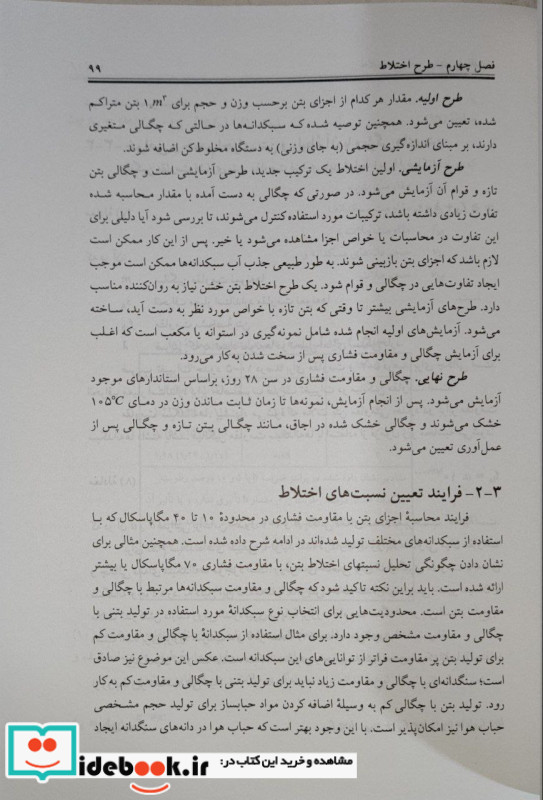 فصل چهارم - طرح اختلاط ۹۹
طرح اولیه. مقدار هر کدام از اجزای بتن برحسب وزن و حجم برای ۱m³ بتن متراکم
شده، تعیین می‌شود. همچنین توصیه شده که سبکدانه‌ها در حالتی که چگالی متغیری
دارند، بر مبنای اندازه‌گیری حجمی (به جای وزنی) به دستگاه مخلوط‌کن اضافه شوند.
طرح آزمایشی. اولین اختلاط یک ترکیب جدید، طرحی آزمایشی است و چگالی بتن
تازه و قوام آن آزمایش می‌شود. در صورتی که چگالی به دست آمده با مقدار محاسبه شده
تفاوت زیادی داشته باشد، ترکیبات مورد استفاده کنترل می‌شوند، تا بررسی شود آیا دلیلی برای
این تفاوت در محاسبات یا خواص اجزا مشاهده می‌شود یا خیر. پس از این کار ممکن است
لازم باشد که اجزای بتن بازبینی شوند. به طور طبیعی جذب آب سبکدانه‌ها ممکن است موجب
ایجاد تفاوت‌هایی در چگالی و قوام شود. یک طرح اختلاط بتن خشن نیاز به روان‌کننده مناسب
دارد. طرح‌های آزمایشی بیشتر تا وقتی که بتن تازه با خواص مورد نظر به دست آید، ساخته
می‌شود. آزمایش‌های اولیه انجام شده شامل نمونه‌گیری در استوانه یا مکعب است که اغلب
برای آزمایش چگالی و مقاومت فشاری پس از سخت شدن به‌کار می‌رود.
طرح نهایی. چگالی و مقاومت فشاری در سن ۲۸ روز، براساس استانداردهای موجود
آزمایش می‌شود. پس از انجام آزمایش، نمونه‌ها تا زمان ثابت ماندن وزن در دمای ۱۰۵°C
خشک می‌شوند و چگالی خشک شده در اجاق، مانند چگالی بتن تازه و چگالی پس از
عمل‌آوری تعیین می‌شود.
۳-۲- فرایند تعیین نسبت‌های اختلاط
فرایند محاسبهٔ اجزای بتن با مقاومت فشاری در محدودهٔ ۱۰ تا ۴۰ مگاپاسکال که با
استفاده از سبکدانه‌های مختلف تولید شده‌اند در ادامه شرح داده شده است. همچنین مثالی برای
نشان دادن چگونگی تحلیل نسبتهای اختلاط بتن، با مقاومت فشاری ۷۰ مگاپاسکال یا بیشتر
ارائه شده است. باید براین نکته تاکید شود که چگالی و مقاومت سبکدانه‌ها مرتبط با چگالی و
مقاومت بتن است. محدودیت‌هایی برای انتخاب نوع سبکدانهٔ مورد استفاده در تولید بتنی با
چگالی و مقاومت مشخص وجود دارد. برای مثال استفاده از سبکدانهٔ با چگالی و مقاومت کم
برای تولید بتن پر مقاومت فراتر از توانایی‌های این سبکدانه است. عکس این موضوع نیز صادق
است؛ سنگدانه‌ای با چگالی و مقاومت زیاد نباید برای تولید بتنی با چگالی و مقاومت کم به‌کار
رود. تولید بتن با چگالی کم به وسیلهٔ اضافه کردن مواد حبابساز برای تولید حجم مشخصی
حباب هوا نیز امکان‌پذیر است. با این وجود بهتر است که حباب هوا در دانه‌های سنگدانه ایجاد
مشاهده و خرید این کتاب در:
idebook.ir